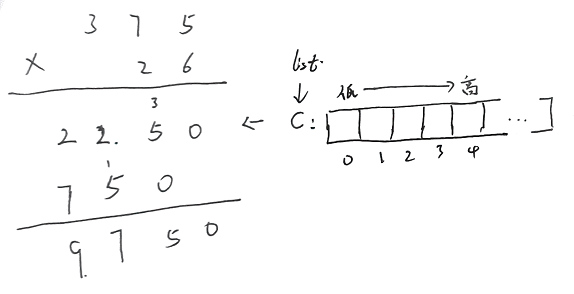 3 7 5
× 2 6
3
2 2. 5 0
1
7 5 0
9 7 5 0
list.
↓
低 → 高
← C: ...]
0 1 2 3 4